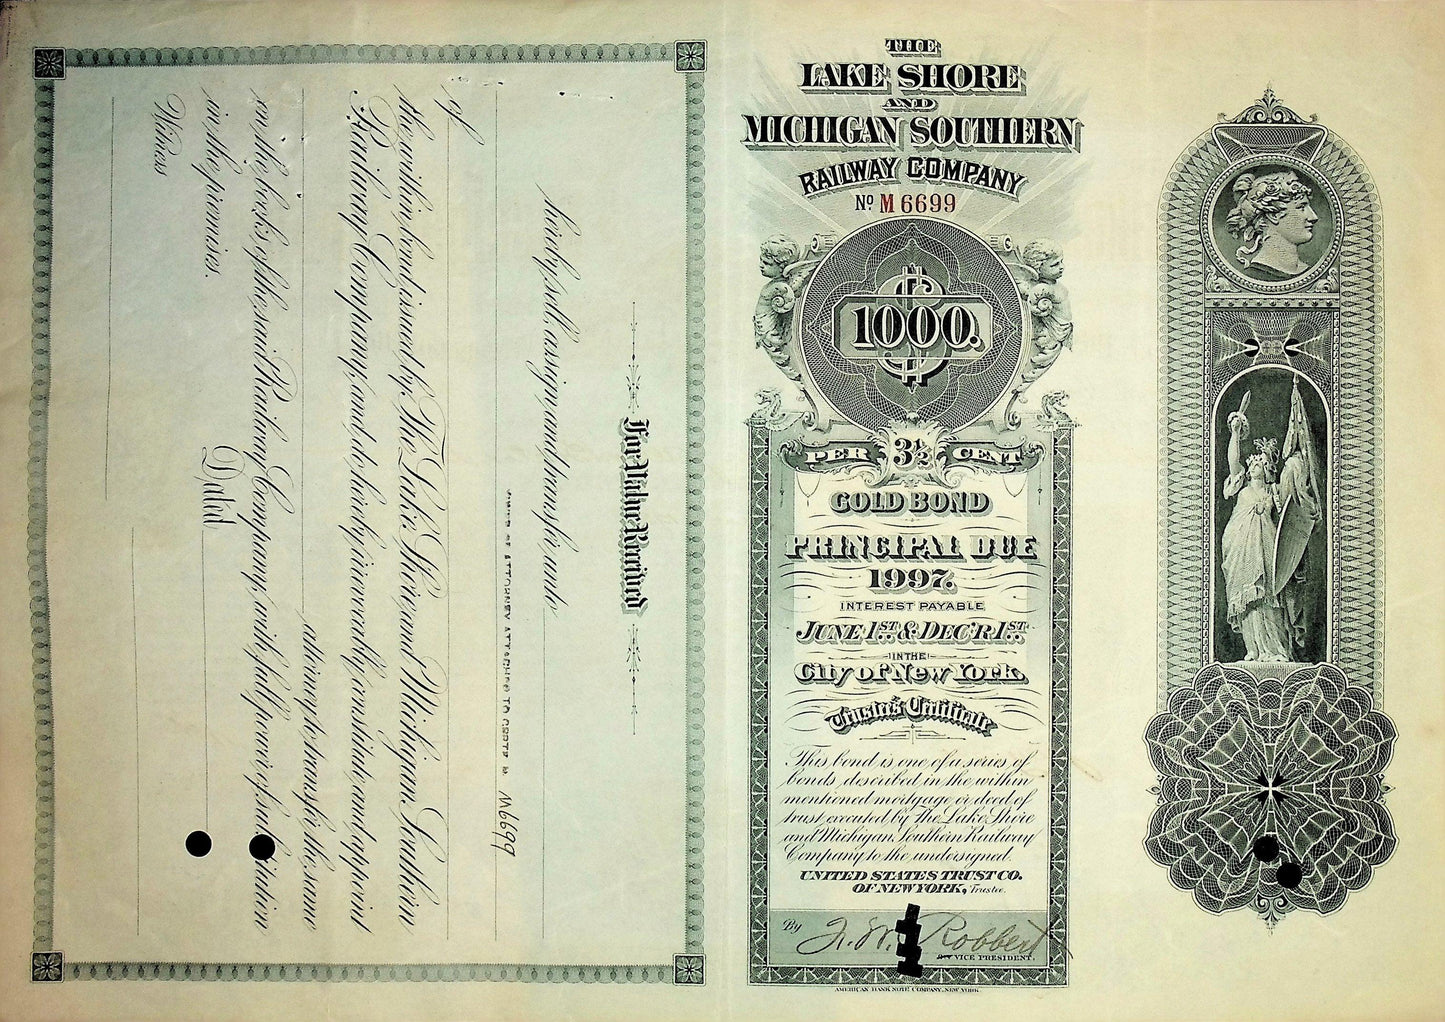 THE
LAKE SHORE
AND
MICHIGAN SOUTHERN
RAILWAY COMPANY
Nº M 6699
$
1000.
PER 3½ CENT
GOLD BOND
PRINCIPAL DUE
1997.
INTEREST PAYABLE
JUNE 1ST & DEC'R 1ST
IN THE
City of New York.
Trustee's Certificate
This bond is one of a series of
bonds, described in the within
mentioned mortgage or deed of
trust executed by The Lake Shore
and Michigan Southern Railway
Company to the undersigned.
UNITED STATES TRUST CO.
OF NEW YORK, Trustee.
By
Robbert
VICE PRESIDENT.
AMERICAN BANK NOTE COMPANY, NEW YORK.
For Value Received
hereby sell, assign and transfer, unto
POWER OF ATTORNEY ATTACHED TO M6699
of
the within bond issued by The Lake Shore and Michigan Southern
Railway Company, and do hereby irrevocably constitute and appoint
attorney to transfer the same
on the books of the said Railway Company, with full power of substitution
in the premises.
Dated
Witness